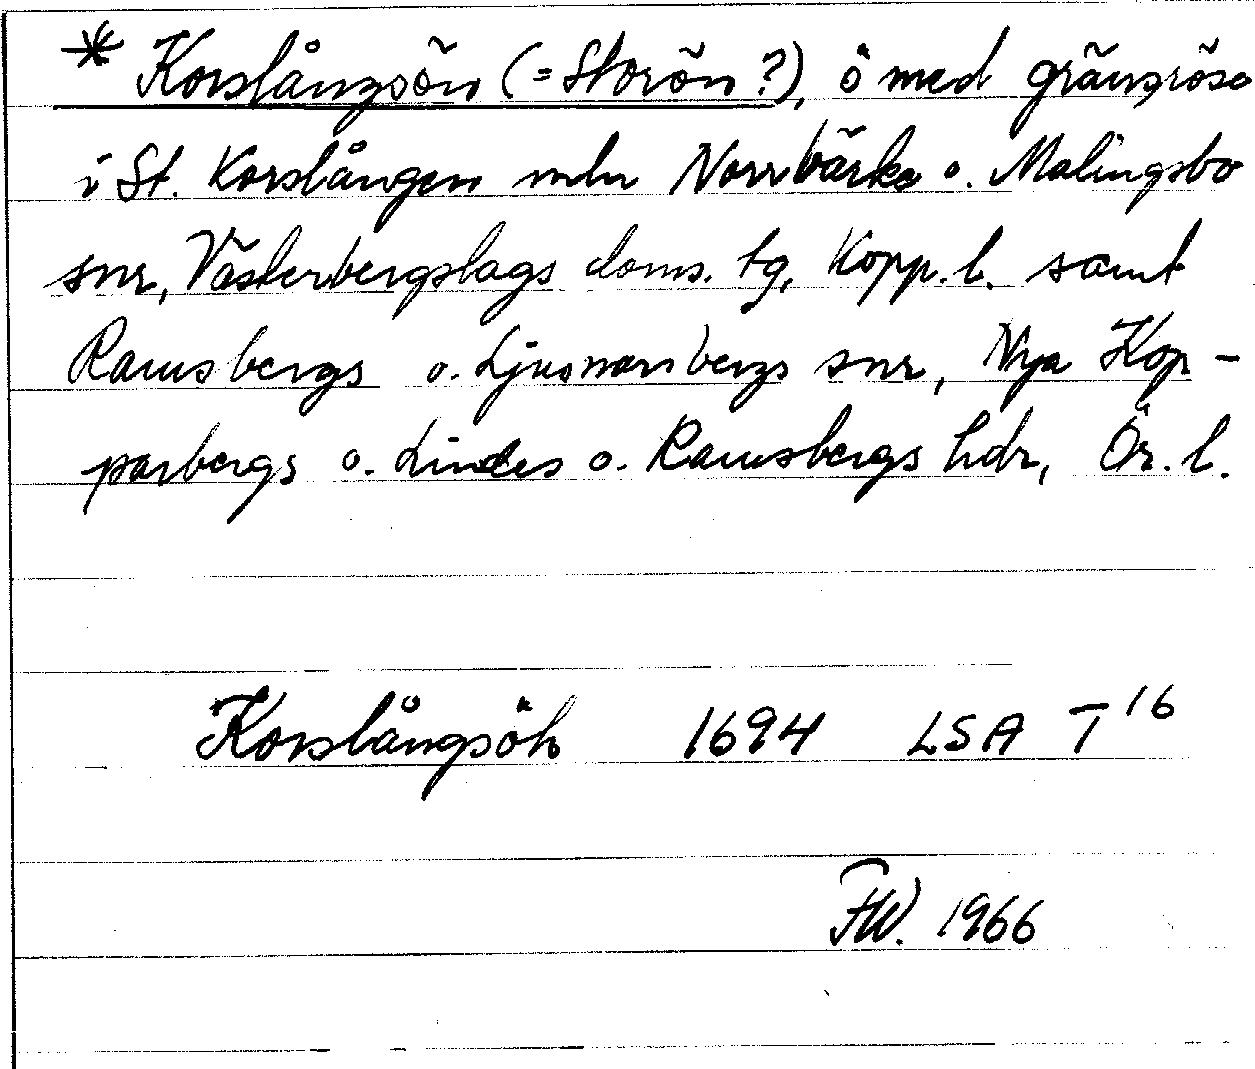 * Korslångsön (=Storön?), ö med gränsröse
i St. Korslången mln Norrbärke o. Malingsbo
snr, Västerbergslags doms. tg, Kopp. l. samt
Ramsbergs o. Ljusnarsbergs snr, Nya Kop-
parbergs o. Lindes o. Ramsbergs hdr, Ör. l.
Korslångsöh 1694 LSA T 16
FW. 1966